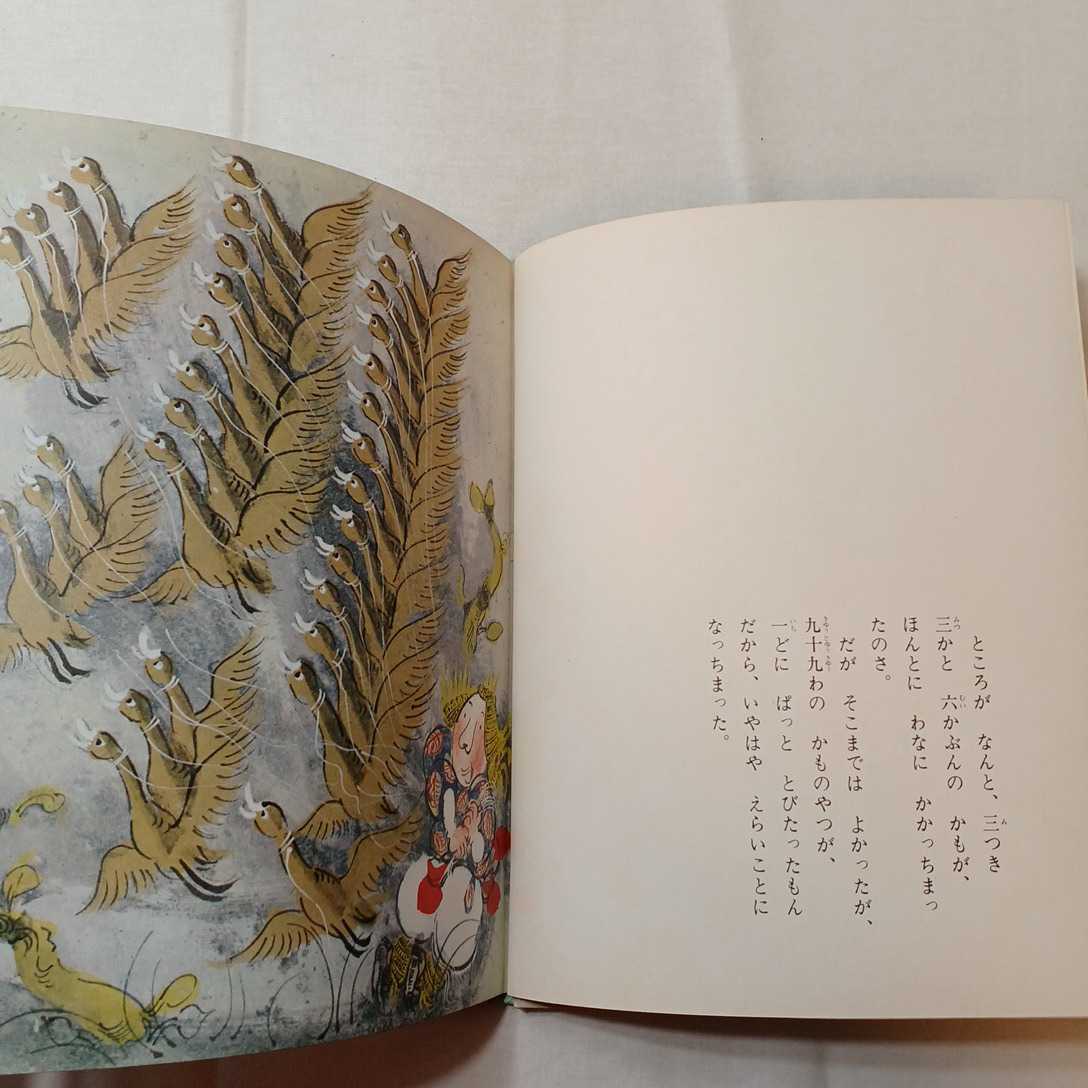 ところが なんと、三つき
三かと 六かぶんの かもが、
ほんとに わなに かかっちまっ
たのさ。
だが そこまでは よかったが、
九十九わの かものやつが、
一どに ぱっと とびたったもん
だから、いやはや えらいことに
なっちまった。